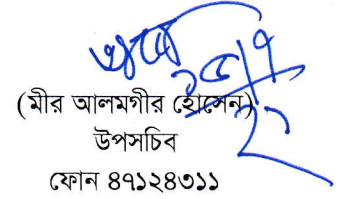 (মীর আলমগীর হোসেন)
উপসচিব
ফোন ৪৭১২৪৩১১